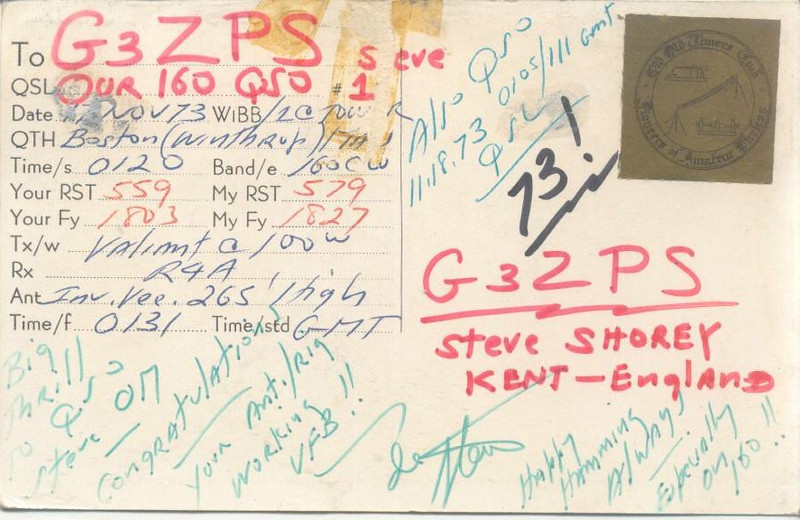 To G3ZPS Steve
QSL OUR 160 QSO # 1
Date NOV 73 WiBB/
QTH Boston (Winthrop)
Time/s 0120 Band/e 160CW
Your RST 559 My RST 579
Your Fy 1803 My Fy 1827
Tx/w Valiant @ 100W
Rx R4A
Ant Inv. Vee. 265' high
Time/f 0131 Time/std GMT
Big
Thrill
To QSO
Steve OM
CONGRATULATIONS
Your Ant./Rig
Working
VFB!!
Also QSO
11.18.73 0105/111 GMT
QSL
73!
Old Old Timers Club
Pioneers of Amateur Wireless
G3ZPS
Steve SHOREY
KENT-England
Happy
Hamming
Always
Especially
on 160!!